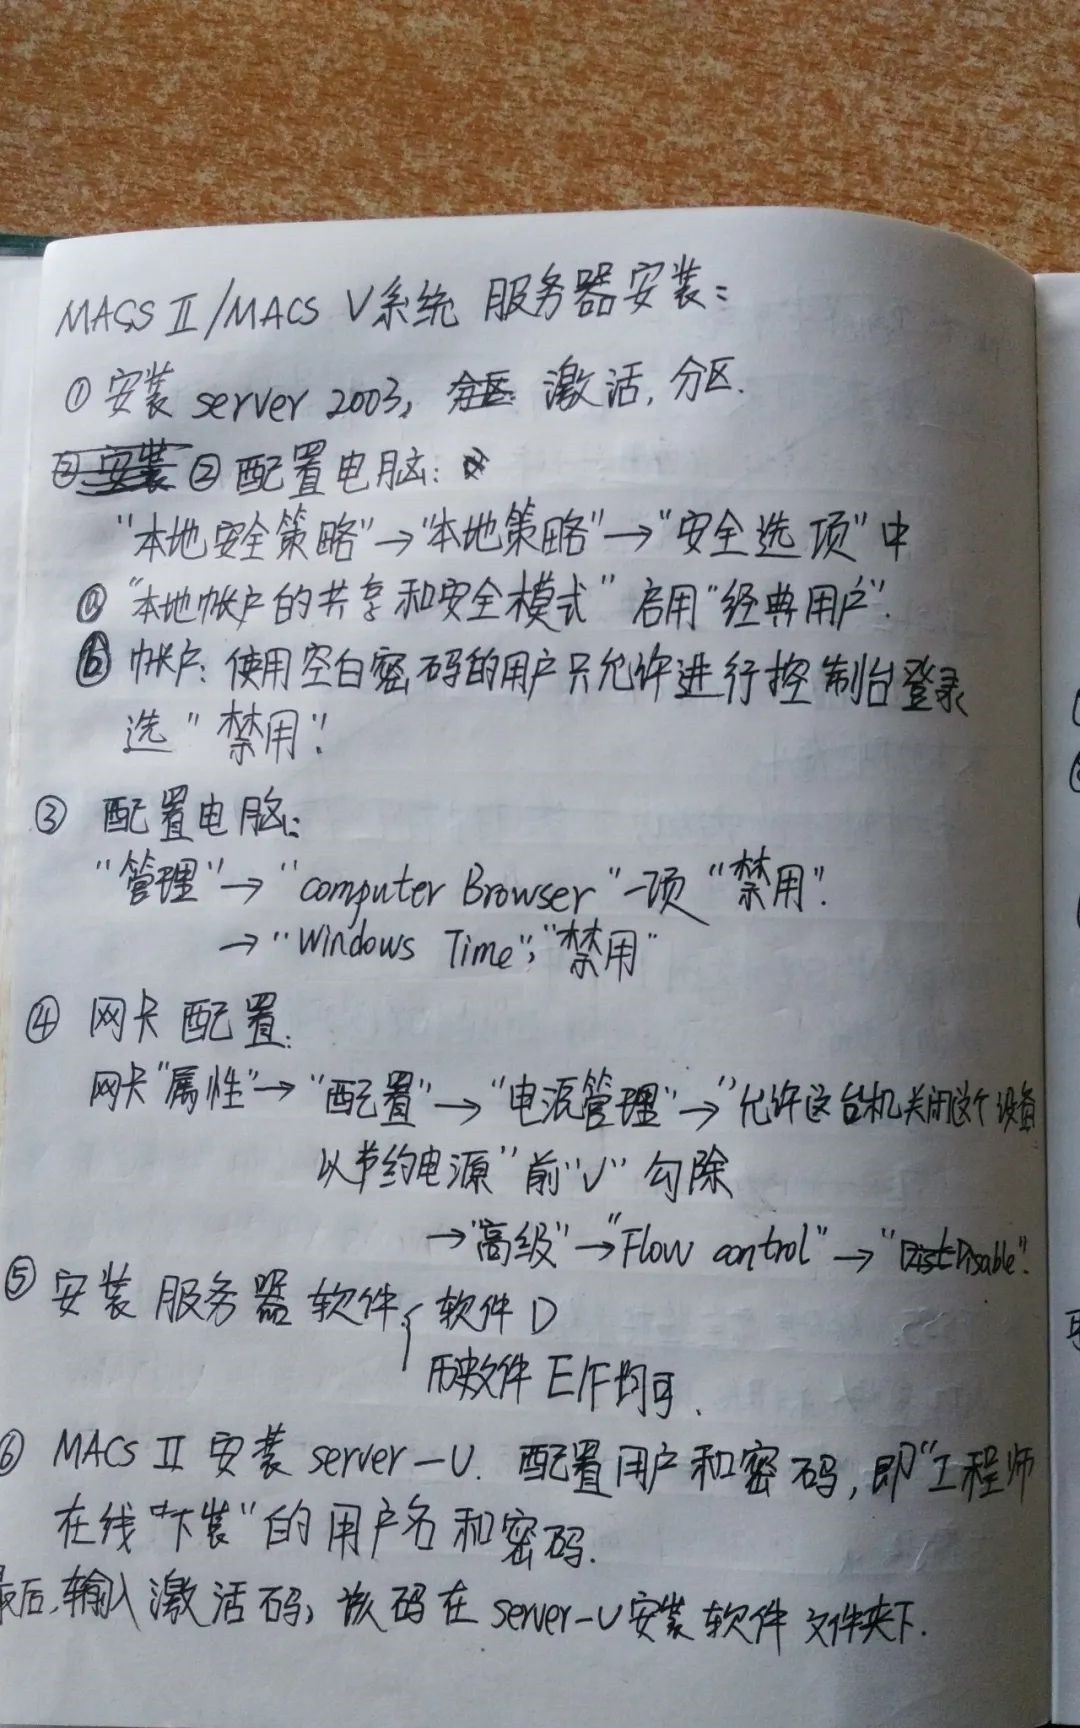 MACS II/MACS V系统 服务器安装:
① 安装 server 2003, 分区 激活, 分区.
② 安装 ② 配置电脑:
"本地安全策略"→"本地策略"→"安全选项"中
ⓐ "本地帐户的共享和安全模式" 启用"经典用户".
ⓑ 帐户: 使用空白密码的用户只允许进行控制台登录
选"禁用".
③ 配置电脑:
"管理"→"computer Browser"一项"禁用".
→"Windows Time";"禁用"
④ 网卡配置:
网卡"属性"→"配置"→"电源管理"→"允许这台机关闭这个设备
以节约电源"前"√"勾除
→"高级"→"Flow control"→"Disable".
⑤ 安装服务器软件{ 软件 D
历史文件 E/F均可.
⑥ MACS II 安装 server-U. 配置用户和密码, 即"工程师
在线"下装"的用户名和密码.
最后, 输入激活码, 该码在 server-U安装软件文件夹下.